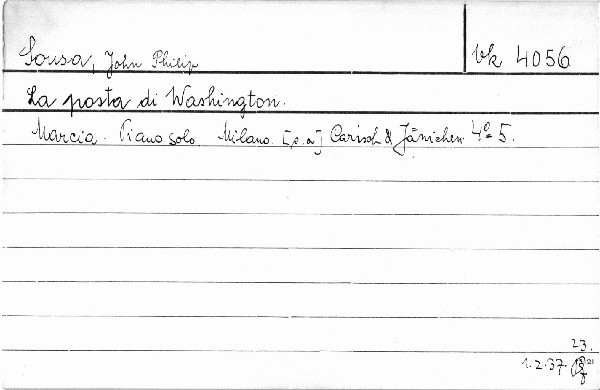 Sousa, John Philip
vk 4056
La posta di Washington.
Marcia. Piano solo. Milano. [s.a] Carisch & Jänichen. 4° 5.
23.
1.2.37.
21